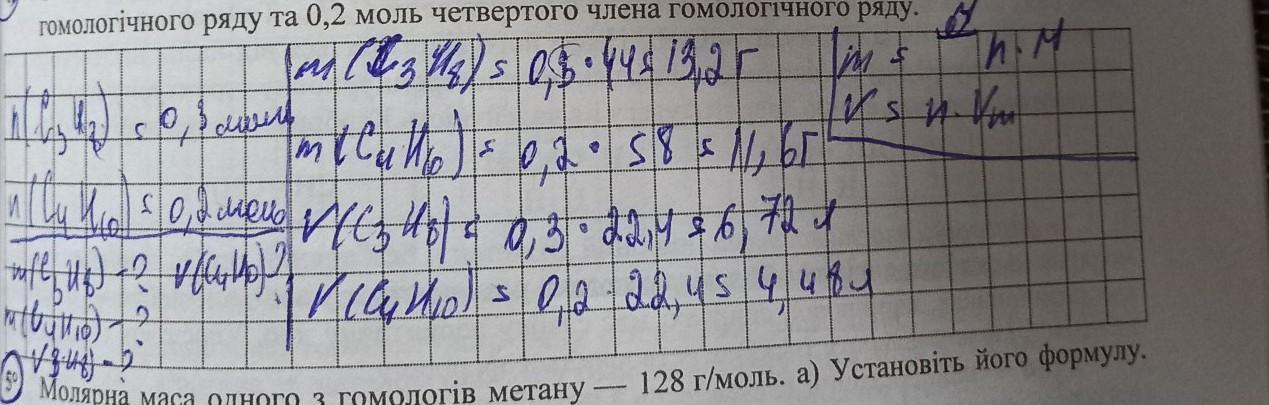 гомологічного ряду та 0,2 моль четвертого члена гомологічного ряду.
n(C₃H₈) = 0,3 моль
n(C₄H₁₀) = 0,2 моль
m(C₃H₈) - ? V(C₄H₁₀) ?
m(C₄H₁₀) - ?
V(C₃H₈) - ?
m(C₃H₈) = 0,3 · 44 = 13,2 г
m(C₄H₁₀) = 0,2 · 58 = 11,6 г
V(C₃H₈) = 0,3 · 22,4 = 6,72 л
V(C₄H₁₀) = 0,2 · 22,4 = 4,48 л
m = n · M
V = n · Vm
5° Молярна маса одного з гомологів метану — 128 г/моль. а) Установіть його формулу.